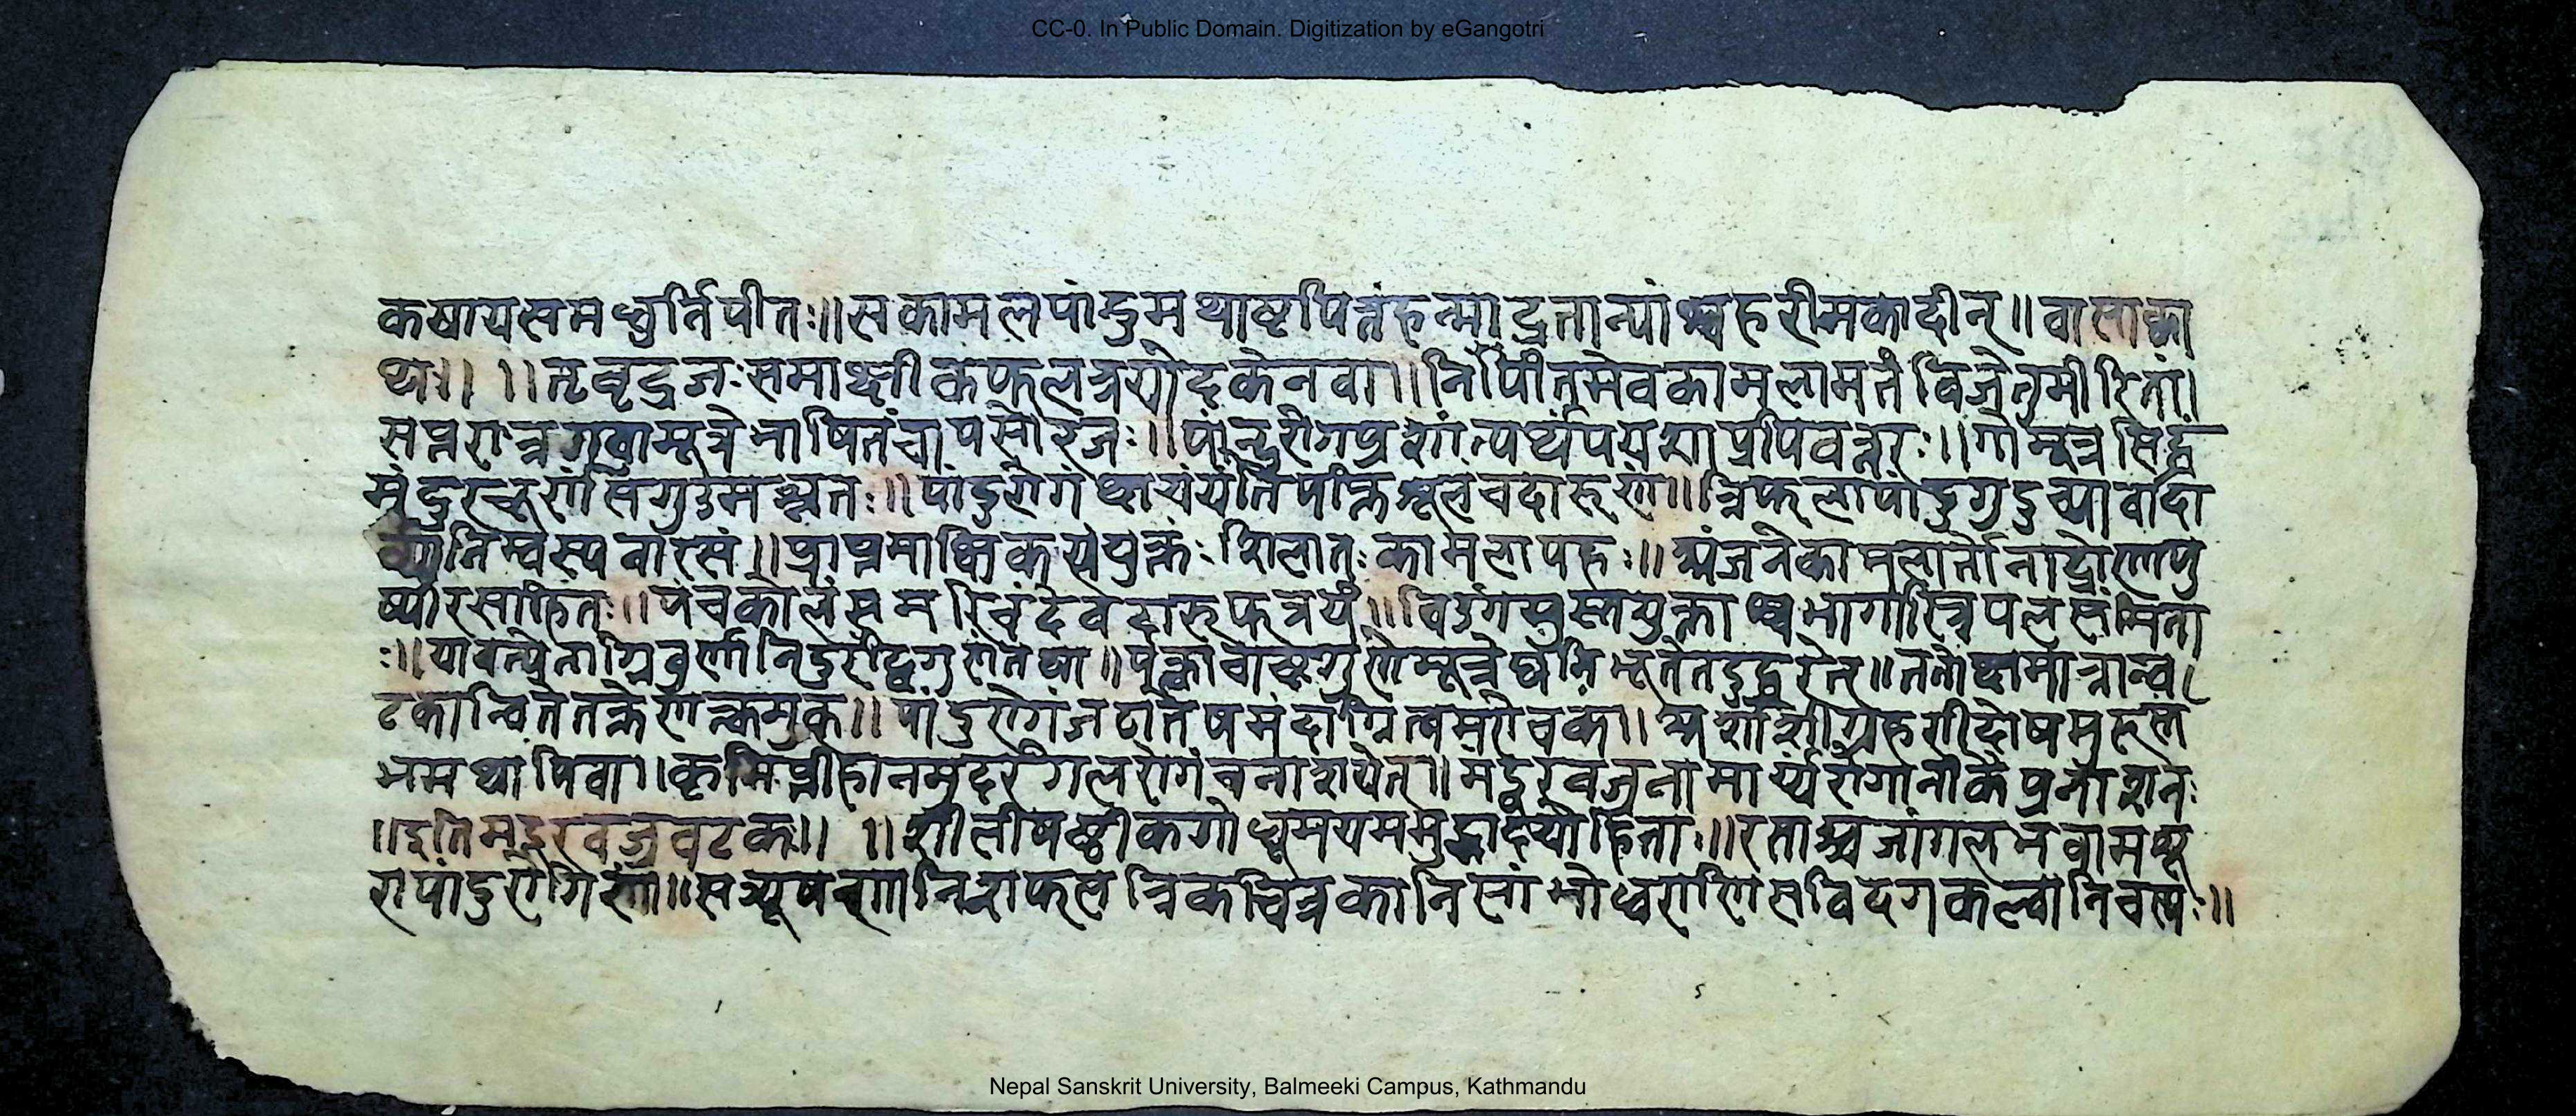 CC-0. In Public Domain. Digitization by eGangotri
कषायसमधुर्तिपीतः॥सकामलपांदुमथाष्टपित्तंहन्मादुत्तान्यांश्चहरीमकादीन्॥वासाक्वा
थः॥ ॥तृवृद्रजःसमाक्षीकफलत्रयोदकेनवा॥निपीतमेवकामलामतंविजेतुमीरितां।
सप्तरात्रगवामूत्रेभाषितंचापसोरजः॥पांन्दुरोगप्रशांत्यर्थपयशाप्रपिवन्नरः॥गोमूत्रसिद्धं
मंदुरचुर्णसगुडमश्नतः॥पांडुरोगं पीक्तशूलंचदारूणं॥त्रिफलापांदुगुदुच्यावादा
र्व्यानिम्वस्यवारसं॥प्राप्तमाक्षिकसंयुक्तंःशिलातःकामलापहः॥अंजनेकामलार्तानाद्रोणपु
ष्पीरसोहितः॥पंचकोलंसमरिचंदेवदारूफत्रयं॥विडंगमुस्तयुक्ताश्चभागास्त्रिपलसंमिता
ः॥यावन्त्येताग्निवुर्णानिदुरंद्विगुणंतथा॥पक्त्वाचाष्टगुणेमूत्रेघनिभूतेतदुद्धरेत्॥ततो
टकान्वितेतक्रेणत्क्रमुक॥पांडुरोगंजठार्तेषमंदाग्नित्वमरोचकं॥अर्शांशीग्रहणीदोषमूरूस्तं
भमथापिवा॥कृमिप्लीहानमुदरंगलरोगंचनाशयेत्॥मंदुरवज्रनामायंरोगानीकंप्रनाशनः
॥इतिमदुरवज्रवटकः॥ ॥शालीषष्ठीकगोधूमयममुद्गादयोहिता॥रसाश्चजांगलभवामधू
रापांडुरोगिणां॥सत्र्यूषणानि फलत्रिकचित्रकानि सविदंगकल्वानिचस्यः॥
Nepal Sanskrit University, Balmeeki Campus, Kathmandu